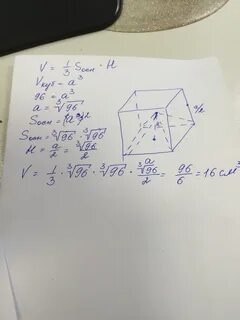 V = 1/3 Sосн · H
Vкуб = a³
96 = a³
a = ∛96
Sосн = (a)²
Sосн = ∛96 · ∛96
H = a/2 = ∛96/2
a/2
V = 1/3 · ∛96 · ∛96 · ∛96/2 = 96/6 = 16 см³